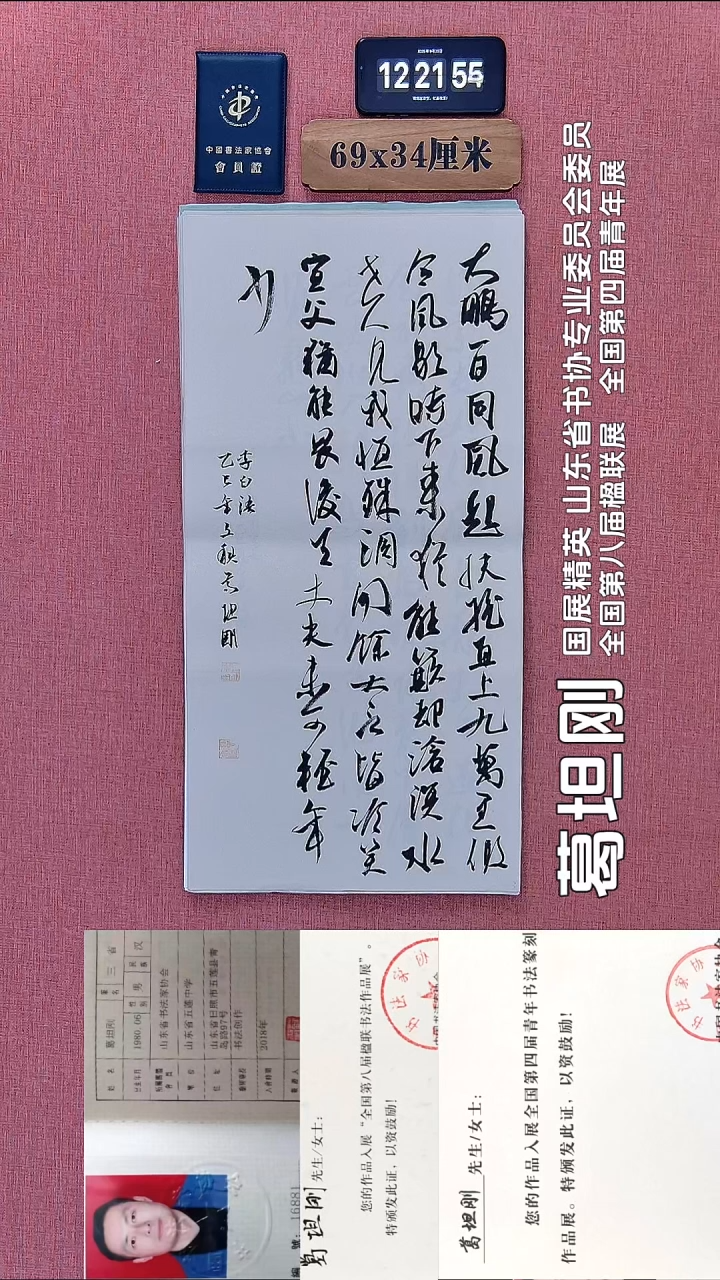 12 21 55
中國書法家協會
會員證
69x34厘米
大鵬一日同風起扶搖直上九萬里假
令風歇時下來猶能簸却滄溟水
世人見我恒殊調聞餘大言皆冷笑
宣父猶能畏後生丈夫未可輕年
少
李白詩
乙巳年之秋葛坦剛
葛坦刚
国展精英 山东省书协专业委员会委员
全国第八届楹联展 全国第四届青年展
姓名 葛坦刚
性别 男 民族 汉
1980.06
山东省书法家协会
山东省五莲中学
山东省日照市五莲县青
岛路97号
书法创作
2018年
编號: 16881
葛坦刚 先生/女士:
您的作品入展“全国第八届楹联书法作品展”。
特颁发此证，以资鼓励!
葛坦刚 先生/女士:
您的作品入展全国第四届青年书法篆刻
作品展。特颁发此证，以资鼓励!